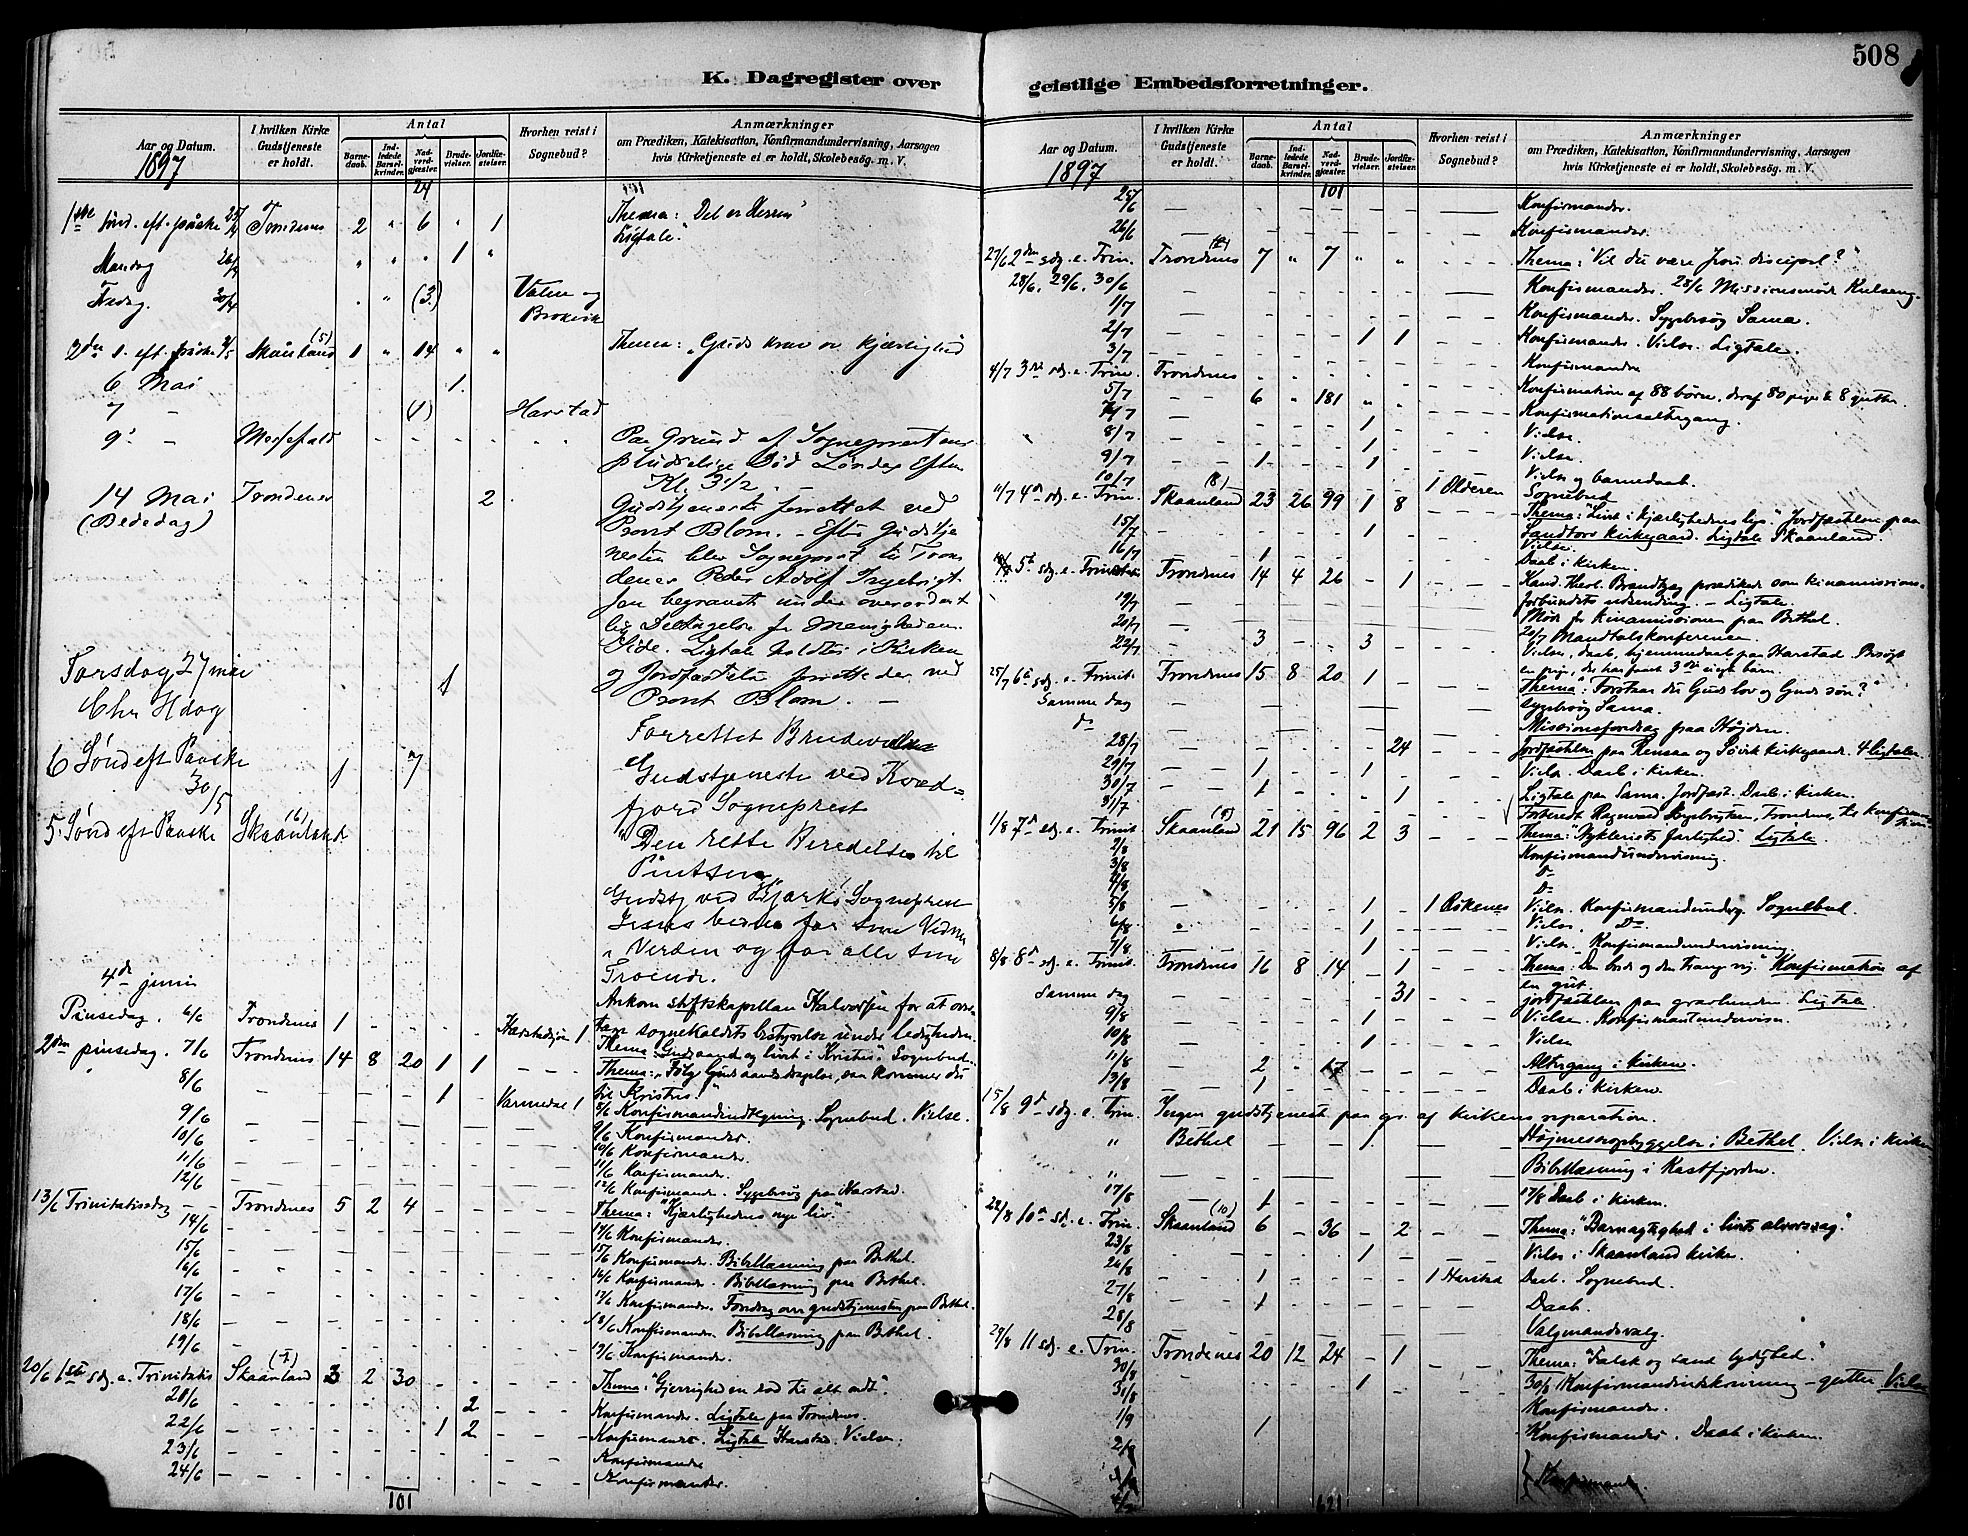 508
K. Dagregister over
geistlige Embedsforretninger.
Aar og Datum.
1897
I hvilken Kirke Gudstjeneste er holdt.
Antal
Barnedaab.
Indledede Barselkvinder.
Nadverdgjæster.
Brudevielser.
Jordfæstelser.
Hvorhen reist i Sognebud?
Anmærkninger
om Prædiken, Katekisation, Konfirmandundervisning, Aarsagen
hvis Kirketjeneste ei er holdt, Skolebesøg. m. V.
24
1ste Sönd. eft. påske 25/4 Trondenes 2 " 6 " 1 Thema: Det er Herren"
Ligtale."
Mandag 26/4 " " " 1 "
Fredag. 30/4 (3)
2den s. eft. påske 2/5 Skånland (5) 1 " 14 " " Thema: „Guds krav er kjærlighed
6 Mai 1.
7 - (1) Harstad
9' - Messefald Paa Grund af Sogneprestens
pludselige Död Lördag Efterm
Kl. 3 1/2
14 Mai Trondenes 2 Gudstjeneste forrettet ved
(Bededag) Provst Blom. - Efter Gudstje
nesten blev Sogneprest til Tron
denes Peder Adolf Ingebrigt
sen begravet under overordent
lig Deltagelse fr Menigheden
Side. Ligtale holdtes i Kirken
og Jordfæstelse forrettedes ved
Provst Blom. -
Torsdag 27 mai 1
Chr Hdag
Forrettet Brudevielse
6 Sönd eft Paaske 1 7 Gudstjeneste ved Kvæd=
30/5 fjord Sogneprest
5. Sönd eft Paaske Skaanland (6) "Den rette Beredelse til
Pintsen"
Gudstj ved Bjarkö Sogneprest
Jesus beder for sine Vidner
i Verden og for alle sine
Troende.
4de juni Ankom stiftskapellan Halvorsen for at over
Pinsedag. 6/6 Trondenes 1 - - - - 1 tage sognekaldets bestyrelse under ledigheden.
2den pinsedag. 7/6 Trondenes 14 8 20 1 1 Thema: Guds aand og livet i Kristus. Sognebud.
8/6 1 1 Thema: „Følg Guds aands dragelse, saa kommer du
til Kristus."
8/6 Konfirmandindtegning. Sognebud. Vielse.
9/6 9/6 Konfirmander.
10/6 10/6 Konfirmander.
11/6 11/6 Konfirmander.
12/6 12/6 Konfirmander. Sygebesøg paa Harstad.
13/6 Trinitatissdag Trondenes 5 2 4 Thema: "Kjærlighedens nye liv."
14/6 14/6 Konfirmander.
15/6 15/6 Konfirmander. Bibellæsning paa Bethel.
16/6 16/6 Konfirmander. Bibellæsning paa Bethel.
17/6 17/6 Konfirmander. Foredrag over gudstjenesten paa Bethel.
18/6 18/6 Konfirmander. Bibellæsning paa Bethel.
19/6 19/6 Konfirmander.
20/6 1ste sdg. e. Trinitatis Skaanland (7) 3 2 30 Thema: "Gjerrighed en rod til alt ondt".
21/6 2 Konfirmander. Ligtale paa Trondenes.
22/6 1 2 Konfirmander. Ligtale Harstad. Vielse.
23/6 Konfirmander
24/6 Konfirmander.
101
Aar og Datum.
1897
I hvilken Kirke Gudstjeneste er holdt.
Antal
Barnedaab.
Indledede Barselkvinder.
Nadverdgjæster.
Brudevielser.
Jordfæstelser.
Hvorhen reist i Sognebud?
Anmærkninger
om Prædiken, Katekisation, Konfirmandundervisning, Aarsagen
hvis Kirketjeneste ei er holdt, Skolebesøg. m. V.
101
25/6 Konfirmander.
26/6 Konfirmander.
27/6 2den sdg. e. Trin. Trondenes 7 " 7 " " Thema: "Vil du være Jesu discipel?"
28/6, 29/6, 30/6 Konfirmander. 28/6 Missionsmøde
1/7 Konfirmander. Sygebesøg Sama.
2/7 1 1 Konfirmander. Vielse. Ligtale.
3/7 Konfirmander
4/7 3die sdg. e. Trin. Trondenes Konfirmation af 88 børn, deraf 80 piger & 8 gutter.
5/7 6 " 181 " " Konfirmationsaltergang.
7/7 1 Vielse.
8/7 1 Vielse.
9/7 1 1 Vielse og barnedaab.
10/7 1 Olderen Sognebud
11/7 4de sdg. e. Trin. Skaanland (8) 23 26 99 1 8 Thema: "Livet i kjærlighedens lys." Jordfæstelse paa
Sandtorv kirkegaard. Ligtale Skaanland.
15/7 1 Vielse.
16/7 1 Daab i kirken.
18/7 5te sdg. e. Trinit. Trondenes 14 4 26 - 1 Kand. Herl. Brandtzæg prædikede som kinamissions-
forbundets udsending. - Ligtale.
19/7 Møde for kinamissionen paa Bethel.
20/7 20/7 Mandtalskonferense.
22/7 3 - - 3 Vielse, daab, hjemmedaab paa Harstad. Besøgt
en pige, der har født 3die uægte barn.
25/7 6te sdg. e. Trinit. Trondenes 15 8 20 1 Thema: "Forstaar du Guds lov og Guds søn?"
Samme dag Sygebesøg Sama.
do Missionsforedrag paa Højden.
28/7 24 Jordfæstelse paa Rensaa og Løvik kirkegaard. 4 ligtaler
29/7 1 1 Vielse. Daab i kirken.
30/7 1 1 Ligtale paa Sama. Jordfæst. Daab i kirken.
31/7
1/8 7de sdg. e. Trinit. Skaanland (9) 21 15 96 2 3 Thema: "Hykleriets farlighed". Ligtale.
2/8 Konfirmandundervisning.
3/8 Do
4/8 Do
5/8 1 - 1 Vielse. Konfirmandunderv. Sognebud.
6/8 1 Vielse. Do.
7/8 1 Vielse. Konfirmandundervisning.
8/8 8de sdg. e. Trinit. Trondenes 16 8 14 - 1 Thema: "Den brede og den trange vej." Konfirmation af
en gut.
Samme dag 31 jordfæstelser paa gravlunden. Ligtale
9/8 1 Vielse. Konfirmantundervisn.
10/8 1 Vielse
11/8 2 - 17 Altergang i kirken.
13/8 1 Daab i kirken.
15/8 9de sdg. e. Trin. Ingen gudstjeneste paa gr. af kirkens reparation.
" Bethel 1 Højmesseopbyggelse i Bethel. Vielse i kirken
" Bibellæsning i Kastfjorden.
17/8 1 17/8 Daab i kirken.
22/8 10de sdg. e. Trin. Skaanland (10) 6 - 36 - 2 Thema: "Barnagtighed i livets alvorsdag."
23/8 1 Vielse i Skaanland kirke.
26/8 1 1 Harstad Daab. Sognebud.
27/8 1 Daab.
28/8 Valgmandsvalg.
29/8 11 sdg. e. Trin. Trondenes 20 12 24 - 1 Thema: "Falsk og sand lydighed."
30/8 1 30/8 Konfirmandindskrivning - gutter Vielse
31/8 Konfirmander.
1/9 1 Konfirmander. Daab i kirken.
2/9
3/9
4/9
621